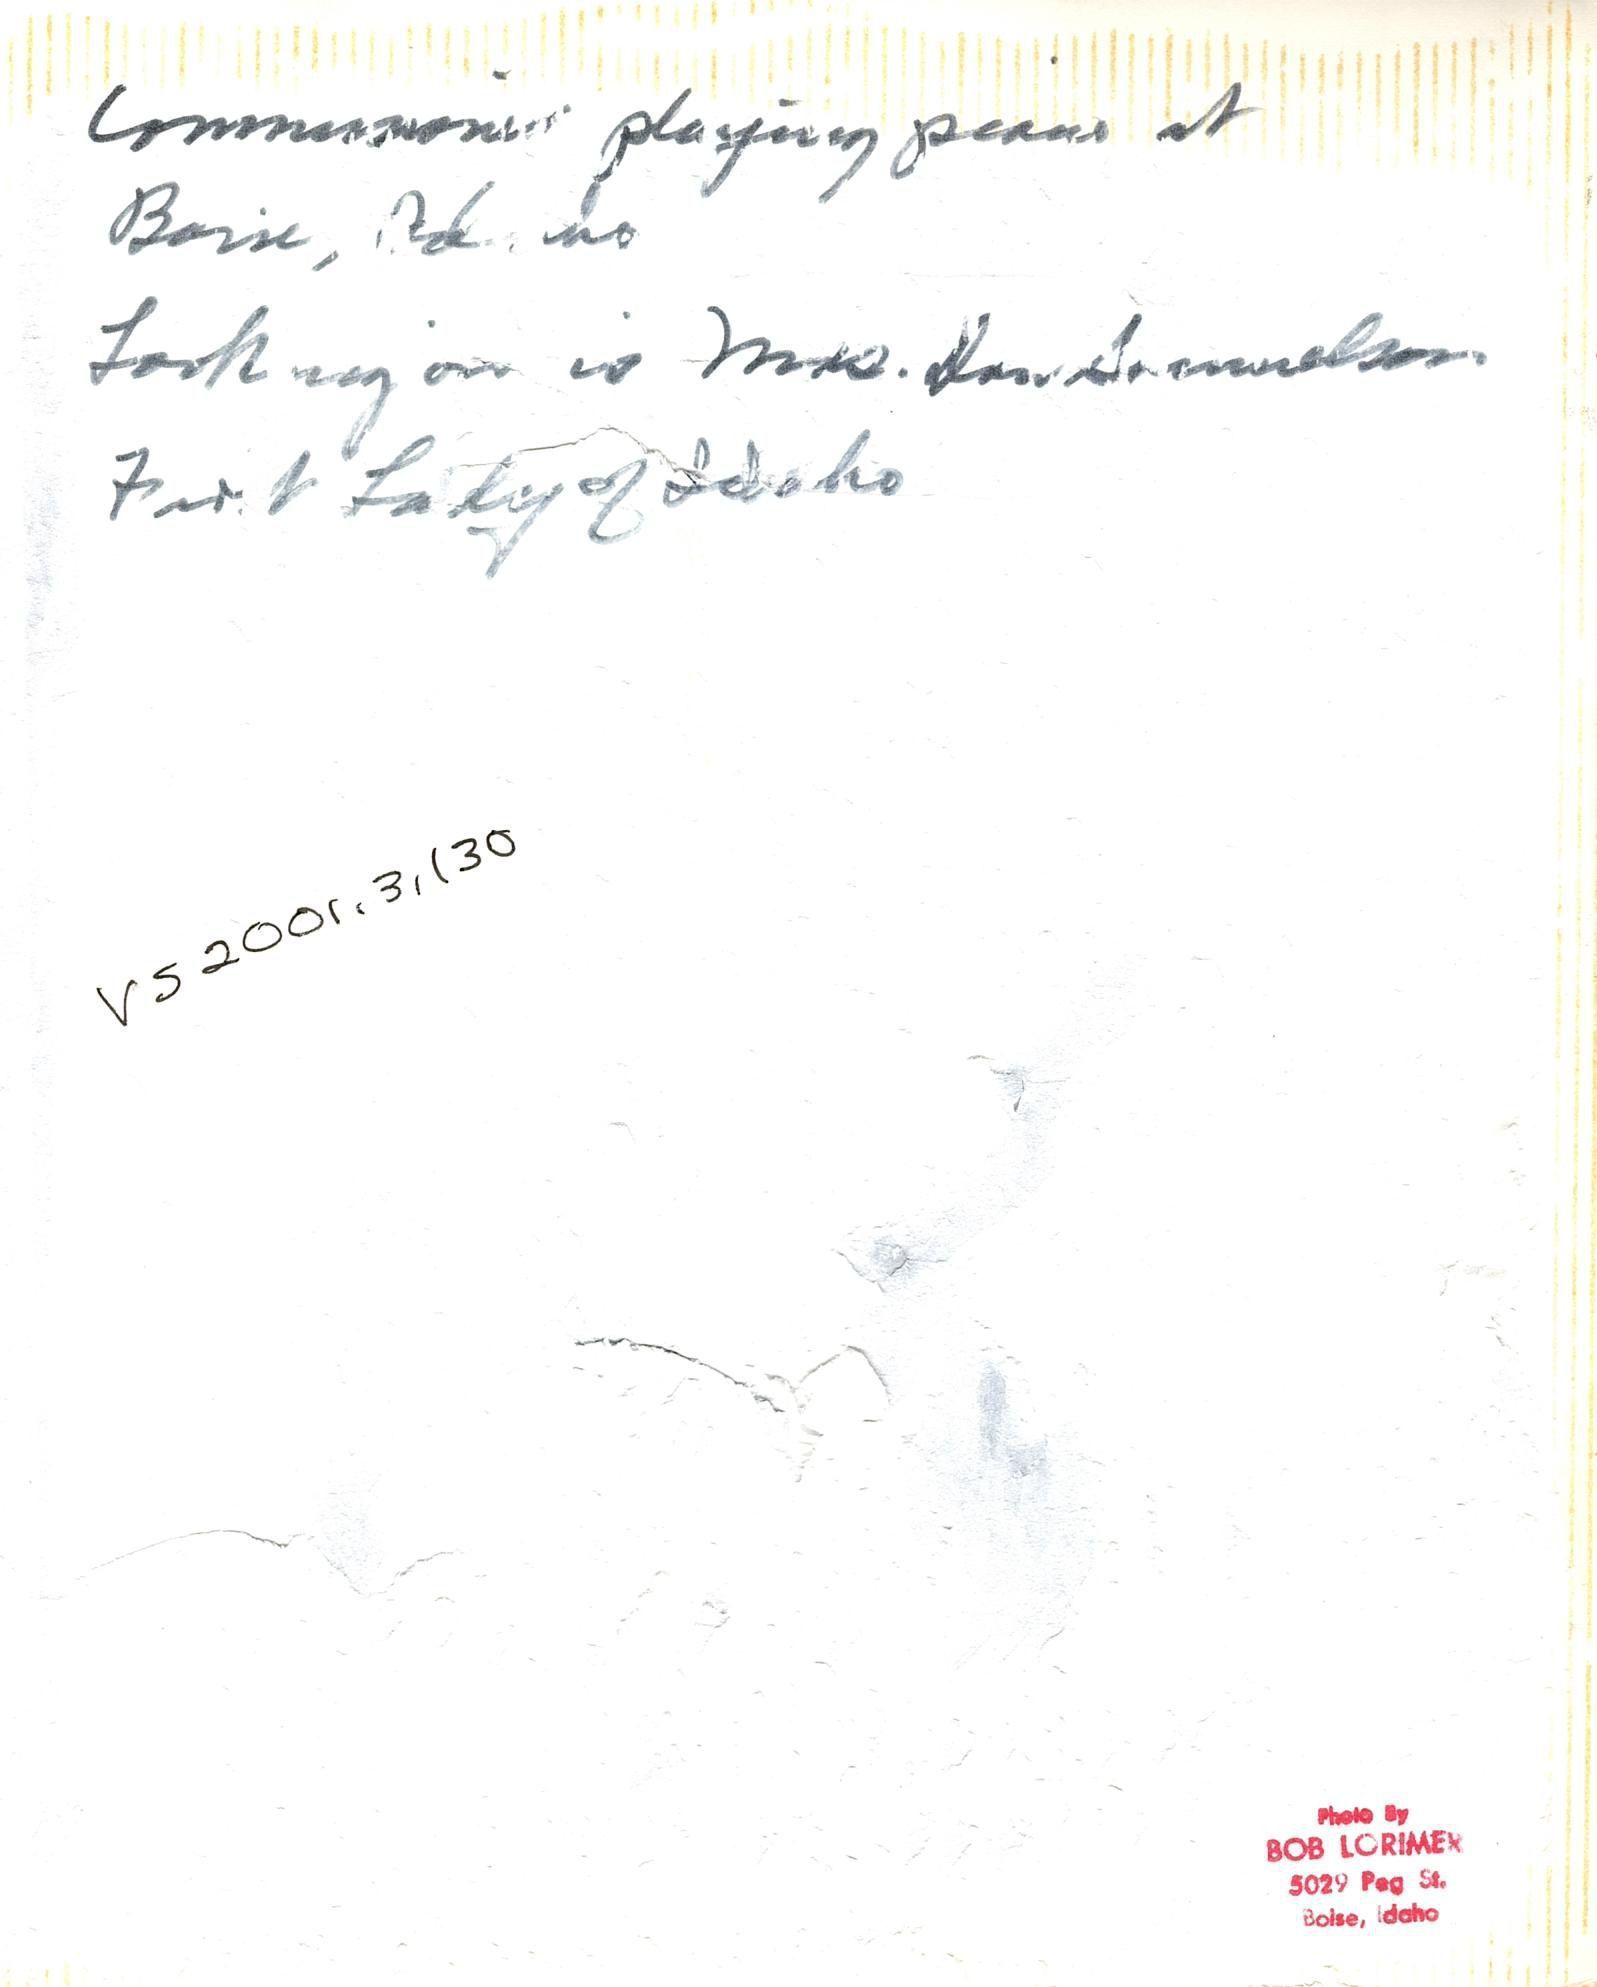 Commissioner playing piano at
Boise, Idaho
Looking on is Mrs. Don Samuelson
First Lady of Idaho
VS2001.3.130
Photo By
BOB LORIMER
5029 Peg St.
Boise, Idaho